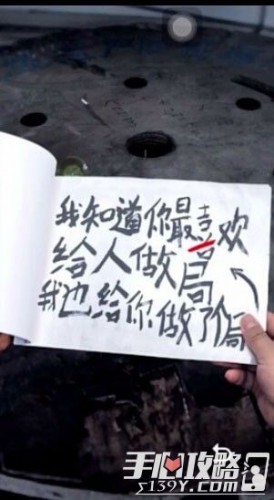 我知道你最喜欢
给人做局
我也给你做了局
手心攻略
sl39y.com